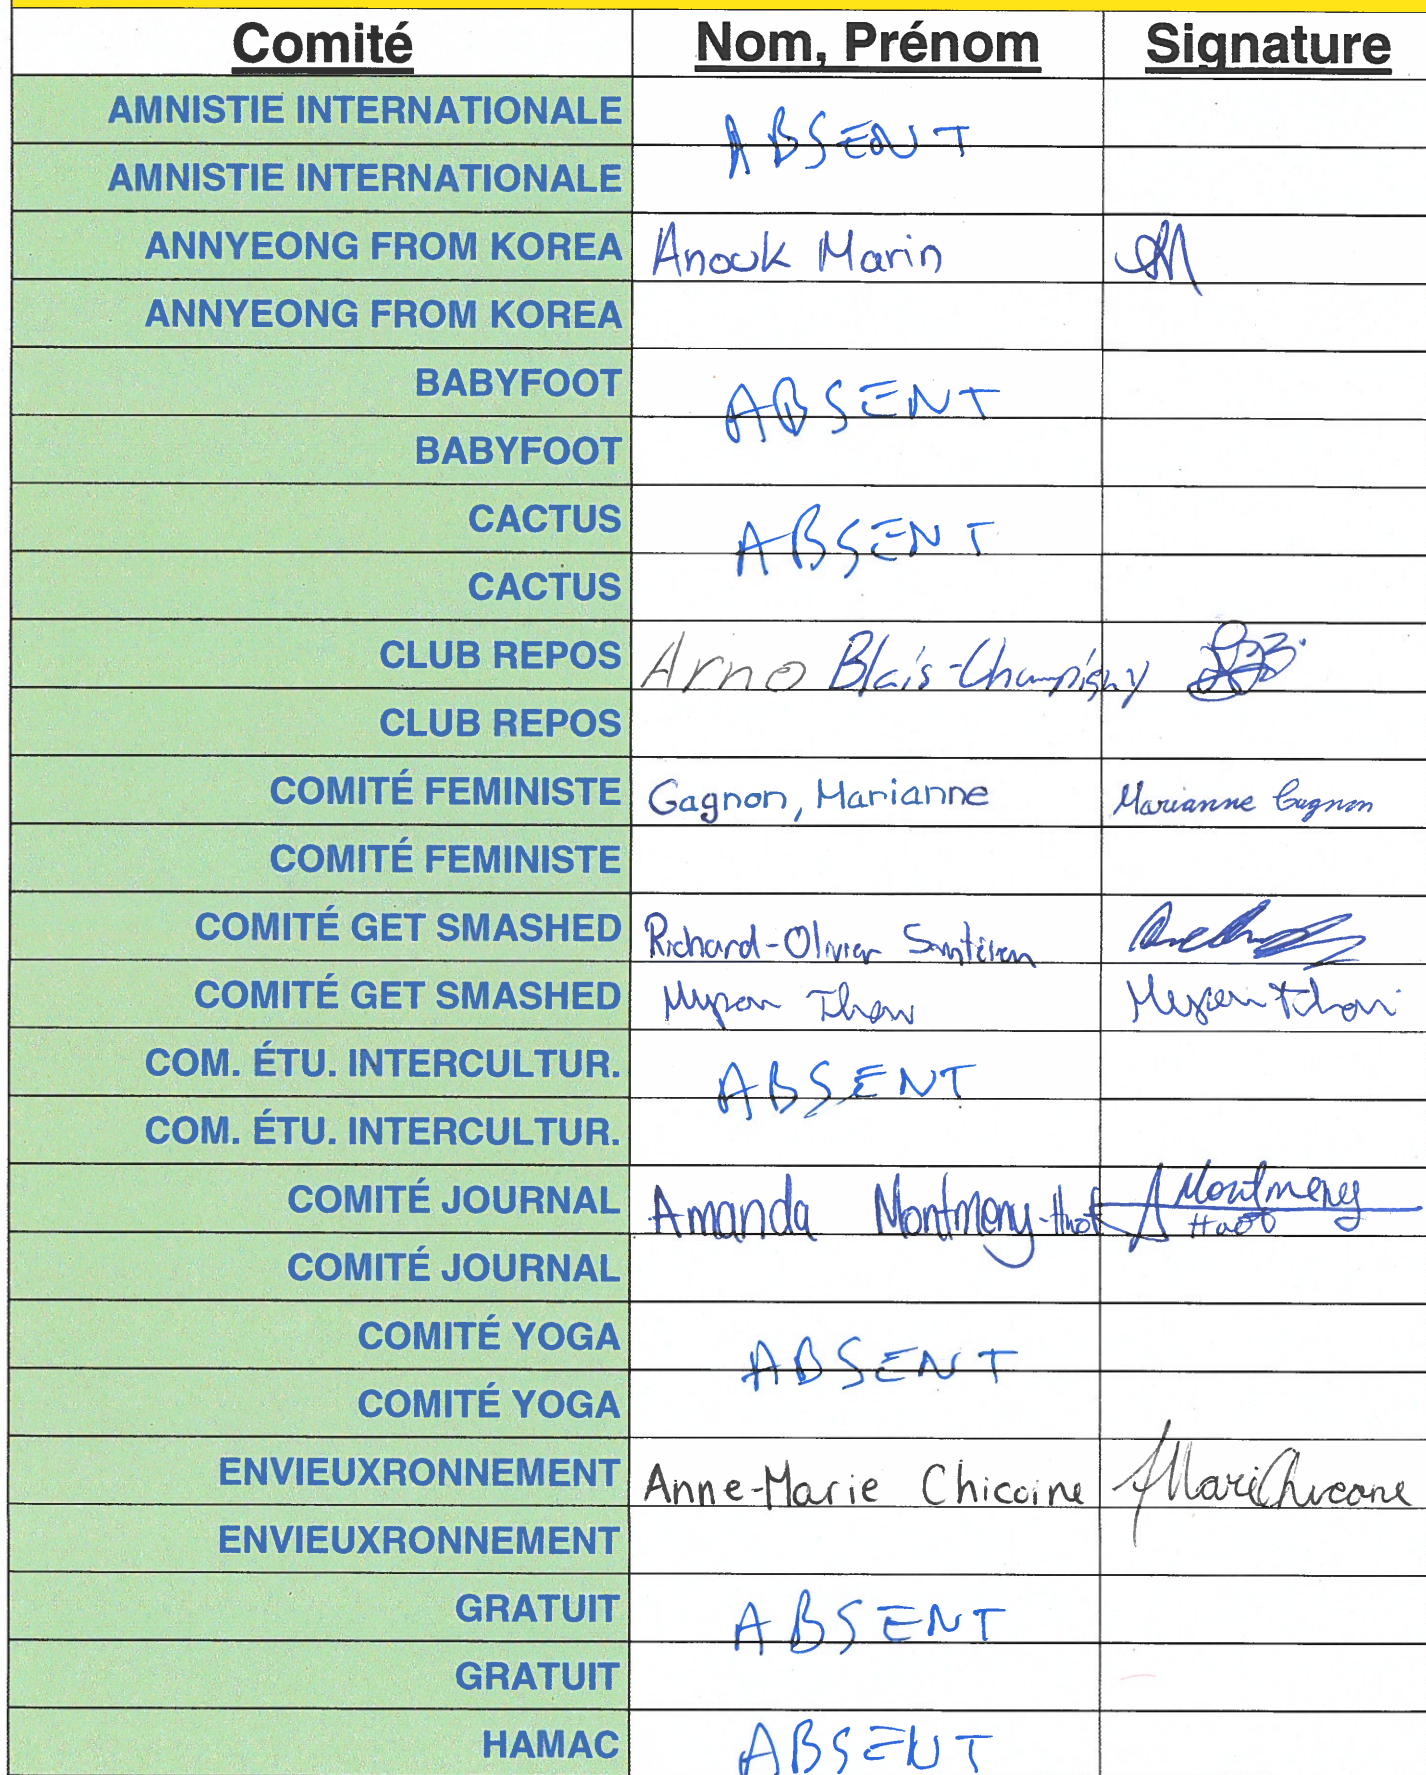 Comité Nom, Prénom Signature
AMNISTIE INTERNATIONALE ABSENT
AMNISTIE INTERNATIONALE
ANNYEONG FROM KOREA Anouk Marin AM
ANNYEONG FROM KOREA
BABYFOOT ABSENT
BABYFOOT
CACTUS ABSENT
CACTUS
CLUB REPOS Arno Blais-Champigny
CLUB REPOS
COMITÉ FEMINISTE Gagnon, Marianne Marianne Gagnon
COMITÉ FEMINISTE
COMITÉ GET SMASHED Richard-Olivier
COMITÉ GET SMASHED
COM. ÉTU. INTERCULTUR. ABSENT
COM. ÉTU. INTERCULTUR.
COMITÉ JOURNAL Amanda Montmeny-Huot A Montmeny Huot
COMITÉ JOURNAL
COMITÉ YOGA ABSENT
COMITÉ YOGA
ENVIEUXRONNEMENT Anne-Marie Chicoine
ENVIEUXRONNEMENT
GRATUIT ABSENT
GRATUIT
HAMAC ABSENT